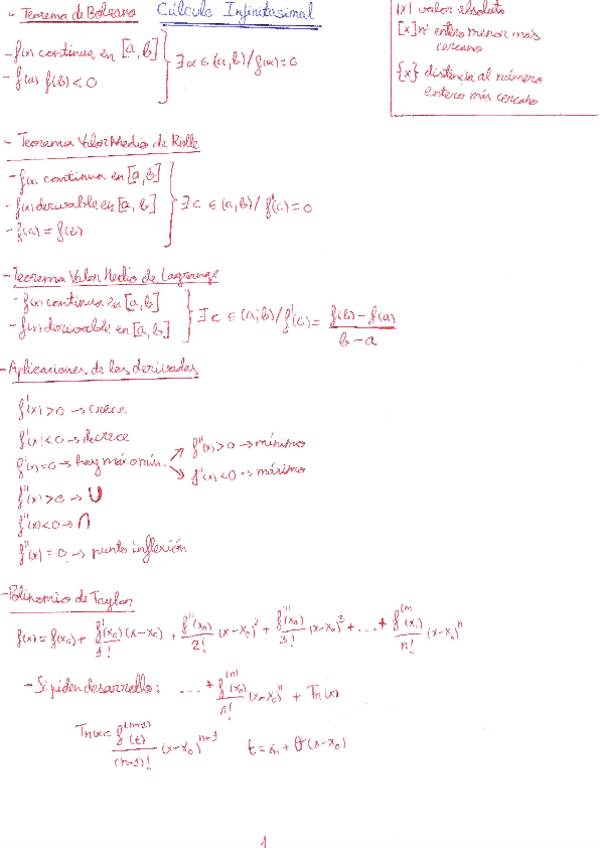 - Teorema de Bolzano Cálculo Infinitesimal
|x| valor absoluto
[x] nº entero menor más
cercano
{x} distancia al número
entero más cercano
- f(x) continua en [a, b]
- f(a) f(b) < 0
∃ α ∈ (a, b) / f(α) = 0
- Teorema Valor Medio de Rolle
- f(x) continua en [a, b]
- f(x) derivable en [a, b]
- f(a) = f(b)
∃ c ∈ (a, b) / f'(c) = 0
- Teorema Valor Medio de Lagrange
- f(x) continua en [a, b]
- f(x) derivable en [a, b]
∃ c ∈ (a, b) / f'(c) = f(b) - f(a) / b - a
- Aplicaciones de las derivadas
f'(x) > 0 → crece
f'(x) < 0 → decrece
f'(x) = 0 → hay máx o mín.
f''(x) > 0 → mínimo
f''(x) < 0 → máximo
f''(x) > 0 → ∪
f''(x) < 0 → ∩
f''(x) = 0 → punto inflexión
- Polinomio de Taylor
f(x) = f(x₀) + f'(x₀)/1! (x - x₀) + f''(x₀)/2! (x - x₀)² + f'''(x₀)/3! (x - x₀)³ + ... + f⁽ⁿ⁾(x₀)/n! (x - x₀)ⁿ
- Si piden desarrollo: ... + f⁽ⁿ⁾(x₀)/n! (x - x₀)ⁿ + Tn(x)
Tn(x) = f⁽ⁿ⁺¹⁾(t)/(n+1)! (x - x₀)ⁿ⁺¹ t = x₀ + θ(x - x₀)
1